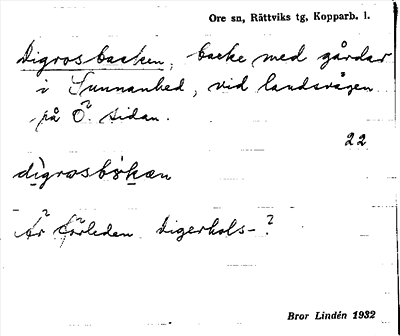 Ore sn, Rättviks tg, Kopparb. l.
Digrosbacken, backe med gårdar
i Sunnanhed, vid landsvägen
på Ö. sidan.
22
Är förleden Digerhols-?
Bror Lindén 1932